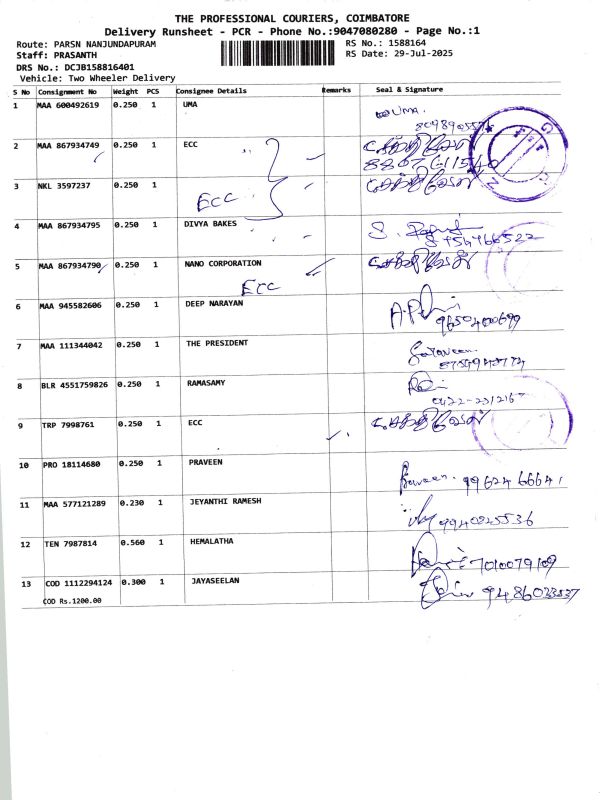 THE PROFESSIONAL COURIERS, COIMBATORE
Delivery Runsheet - PCR - Phone No.:9047080280 - Page No.:1
Route: PARSN NANJUNDAPURAM
RS No.: 1588164
Staff: PRASANTH
RS Date: 29-Jul-2025
DRS No.: DCJB158816401
Vehicle: Two Wheeler Delivery
S No Consignment No Weight PCS Consignee Details Remarks Seal & Signature
1 MAA 600492619 0.250 1 UMA UMA.
2 MAA 867934749 0.250 1 ECC சக்திவேல்
8807611540
3 NKL 3597237 0.250 1 ECC சக்திவேல்
4 MAA 867934795 0.250 1 DIVYA BAKES
5 MAA 867934790 0.250 1 NANO CORPORATION சக்திவேல்
ECC
6 MAA 945582606 0.250 1 DEEP NARAYAN
7 MAA 111344042 0.250 1 THE PRESIDENT
8 BLR 4551759826 0.250 1 RAMASAMY
9 TRP 7998761 0.250 1 ECC சக்திவேல்
10 PRO 18114680 0.250 1 PRAVEEN 99624 66641
11 MAA 577121289 0.230 1 JEYANTHI RAMESH 9940325536
12 TEN 7987814 0.560 1 HEMALATHA 7010079109
13 COD 1112294124 0.300 1 JAYASEELAN
COD Rs.1200.00